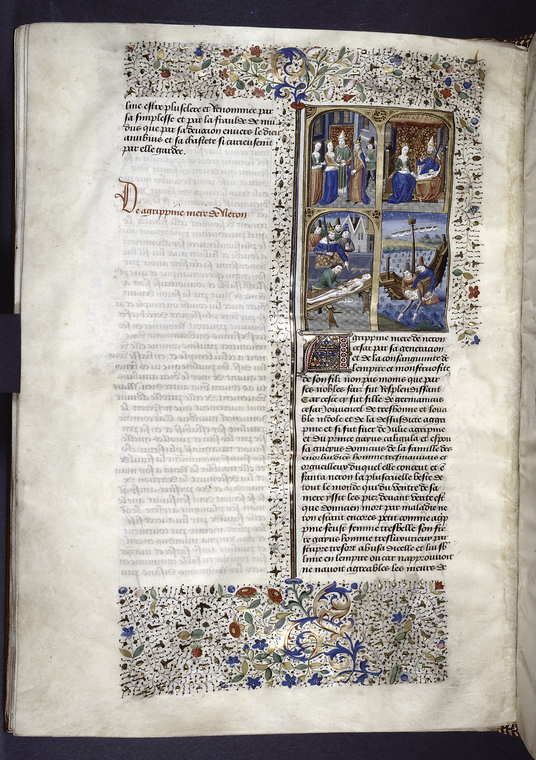 line estre plus clere et renommee par
sa simplesse et par la fraulde de mu
dus que par sa devocion envers le dieu
anubius et sa chastete si curieusemt
par elle gardee.
De agrippine mere de Neron
Agrippine mere de neron
cesar par sa generacion
et de la consanguinite de
lempire et monstruosite
de son filz non pas moins que par
ses nobles fais fut resplendissant
Car ceste cy fut fille de germanicus
cesar jouvencel de tresbonne et loua
ble indole et de la dessusdicte agrip
pine et si fut seur de
et du prince gayus caligula et espou
sa gneyus domicius de la famille des
homme tresmauvais et
orguelleux duquel elle conceut et e
fanta neron la pluscruelle beste de
tout le monde qui du ventre de sa
mere yssit les piez devant Apres ce
que domicien mort par maladie ne
ron estant encores petit comme agp
pine feust femme tresbelle son fre
re gayus homme tresluxurieux par
stupre tresort abusa dicelle et luy esle
lui en lempire ou car napprouvoit
ne navoit agreables les meurs de